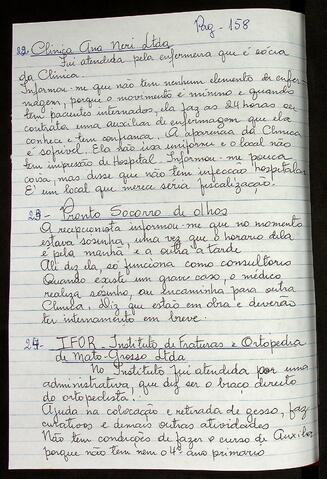 Pag - 158
22. Clinica Ana Neri Ltda
Fui atendida pela enfermeira que é sócia
da Clínica.
Informou-me que não tem nenhum elemento de enfer-
magem, porque o movimento é mínimo e quando
tem pacientes internados, ela faz as 24 horas ou
contrata uma auxiliar de enfermagem que ela
conhece e tem confiança. A aparencia da Clínica
é sofrivel. Ela não usa uniforme e o local não
tem impressão de Hospital. Informou-me pouca
coisa, mas disse que não tem infecção hospitalar
É um local que merece séria fiscalização.
23- Pronto Socorro de olhos
A recepcionista informou-me que no momento
estava sosinha, uma vez que o horario dela
é pela manhã e a outra à tarde.
Ali diz ela, só funciona como consultório
Quando existe um grave caso, o médico
realiza sosinho, ou encaminha para outra
Clínica. Diz que estão em obra e deverão
ter internamento em breve.
24- IFOR - Instituto de Fraturas e Ortopedia
de Mato-Grosso Ltda
No Instituto fui atendida por uma
administrativa, que diz ser o braço direito
do ortopedista.
Ajuda na colocação e retirada de gesso, faz
curativos e demais outras atividades
Não tem condições de fazer o curso de Auxiliar
porque não tem nem o 4º ano primário